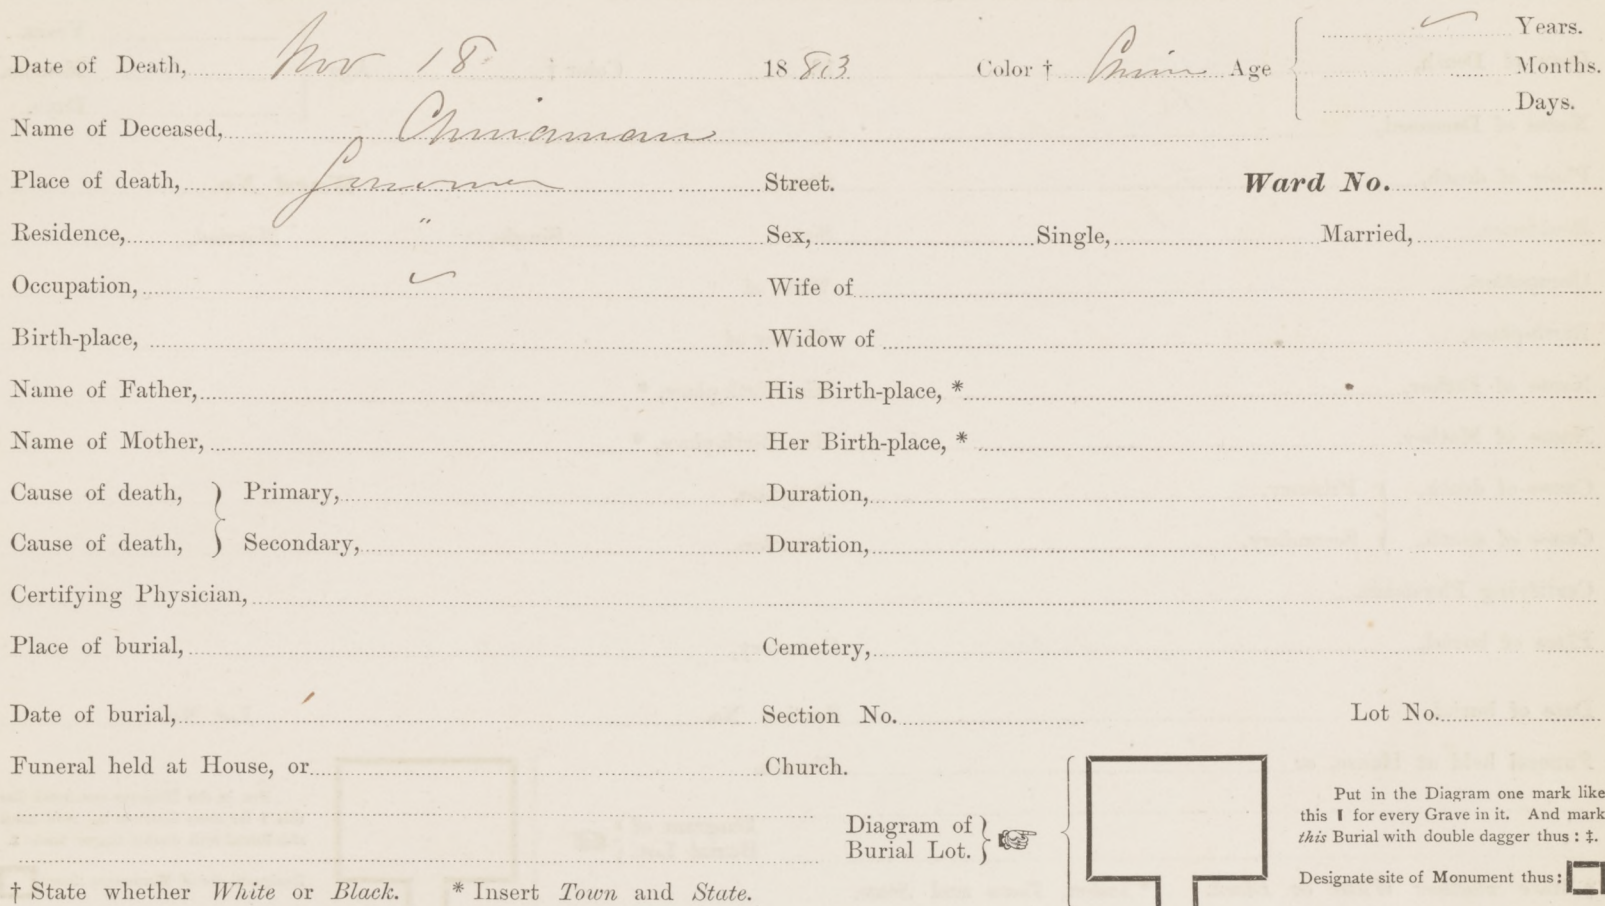 Date of Death, Nov 18 1883 Color † Age Years.
Months.
Days.
Name of Deceased, Chinaman
Place of death, Sonoma Street. Ward No.
Residence, " Sex, Single, Married,
Occupation, Wife of
Birth-place, Widow of
Name of Father, His Birth-place, *
Name of Mother, Her Birth-place, *
Cause of death, } Primary, Duration,
Cause of death, } Secondary, Duration,
Certifying Physician,
Place of burial, Cemetery,
Date of burial, Section No. Lot No.
Funeral held at House, or Church.
Diagram of
Burial Lot.
Put in the Diagram one mark like
this I for every Grave in it. And mark
this Burial with double dagger thus : ‡.
Designate site of Monument thus :
† State whether White or Black. * Insert Town and State.